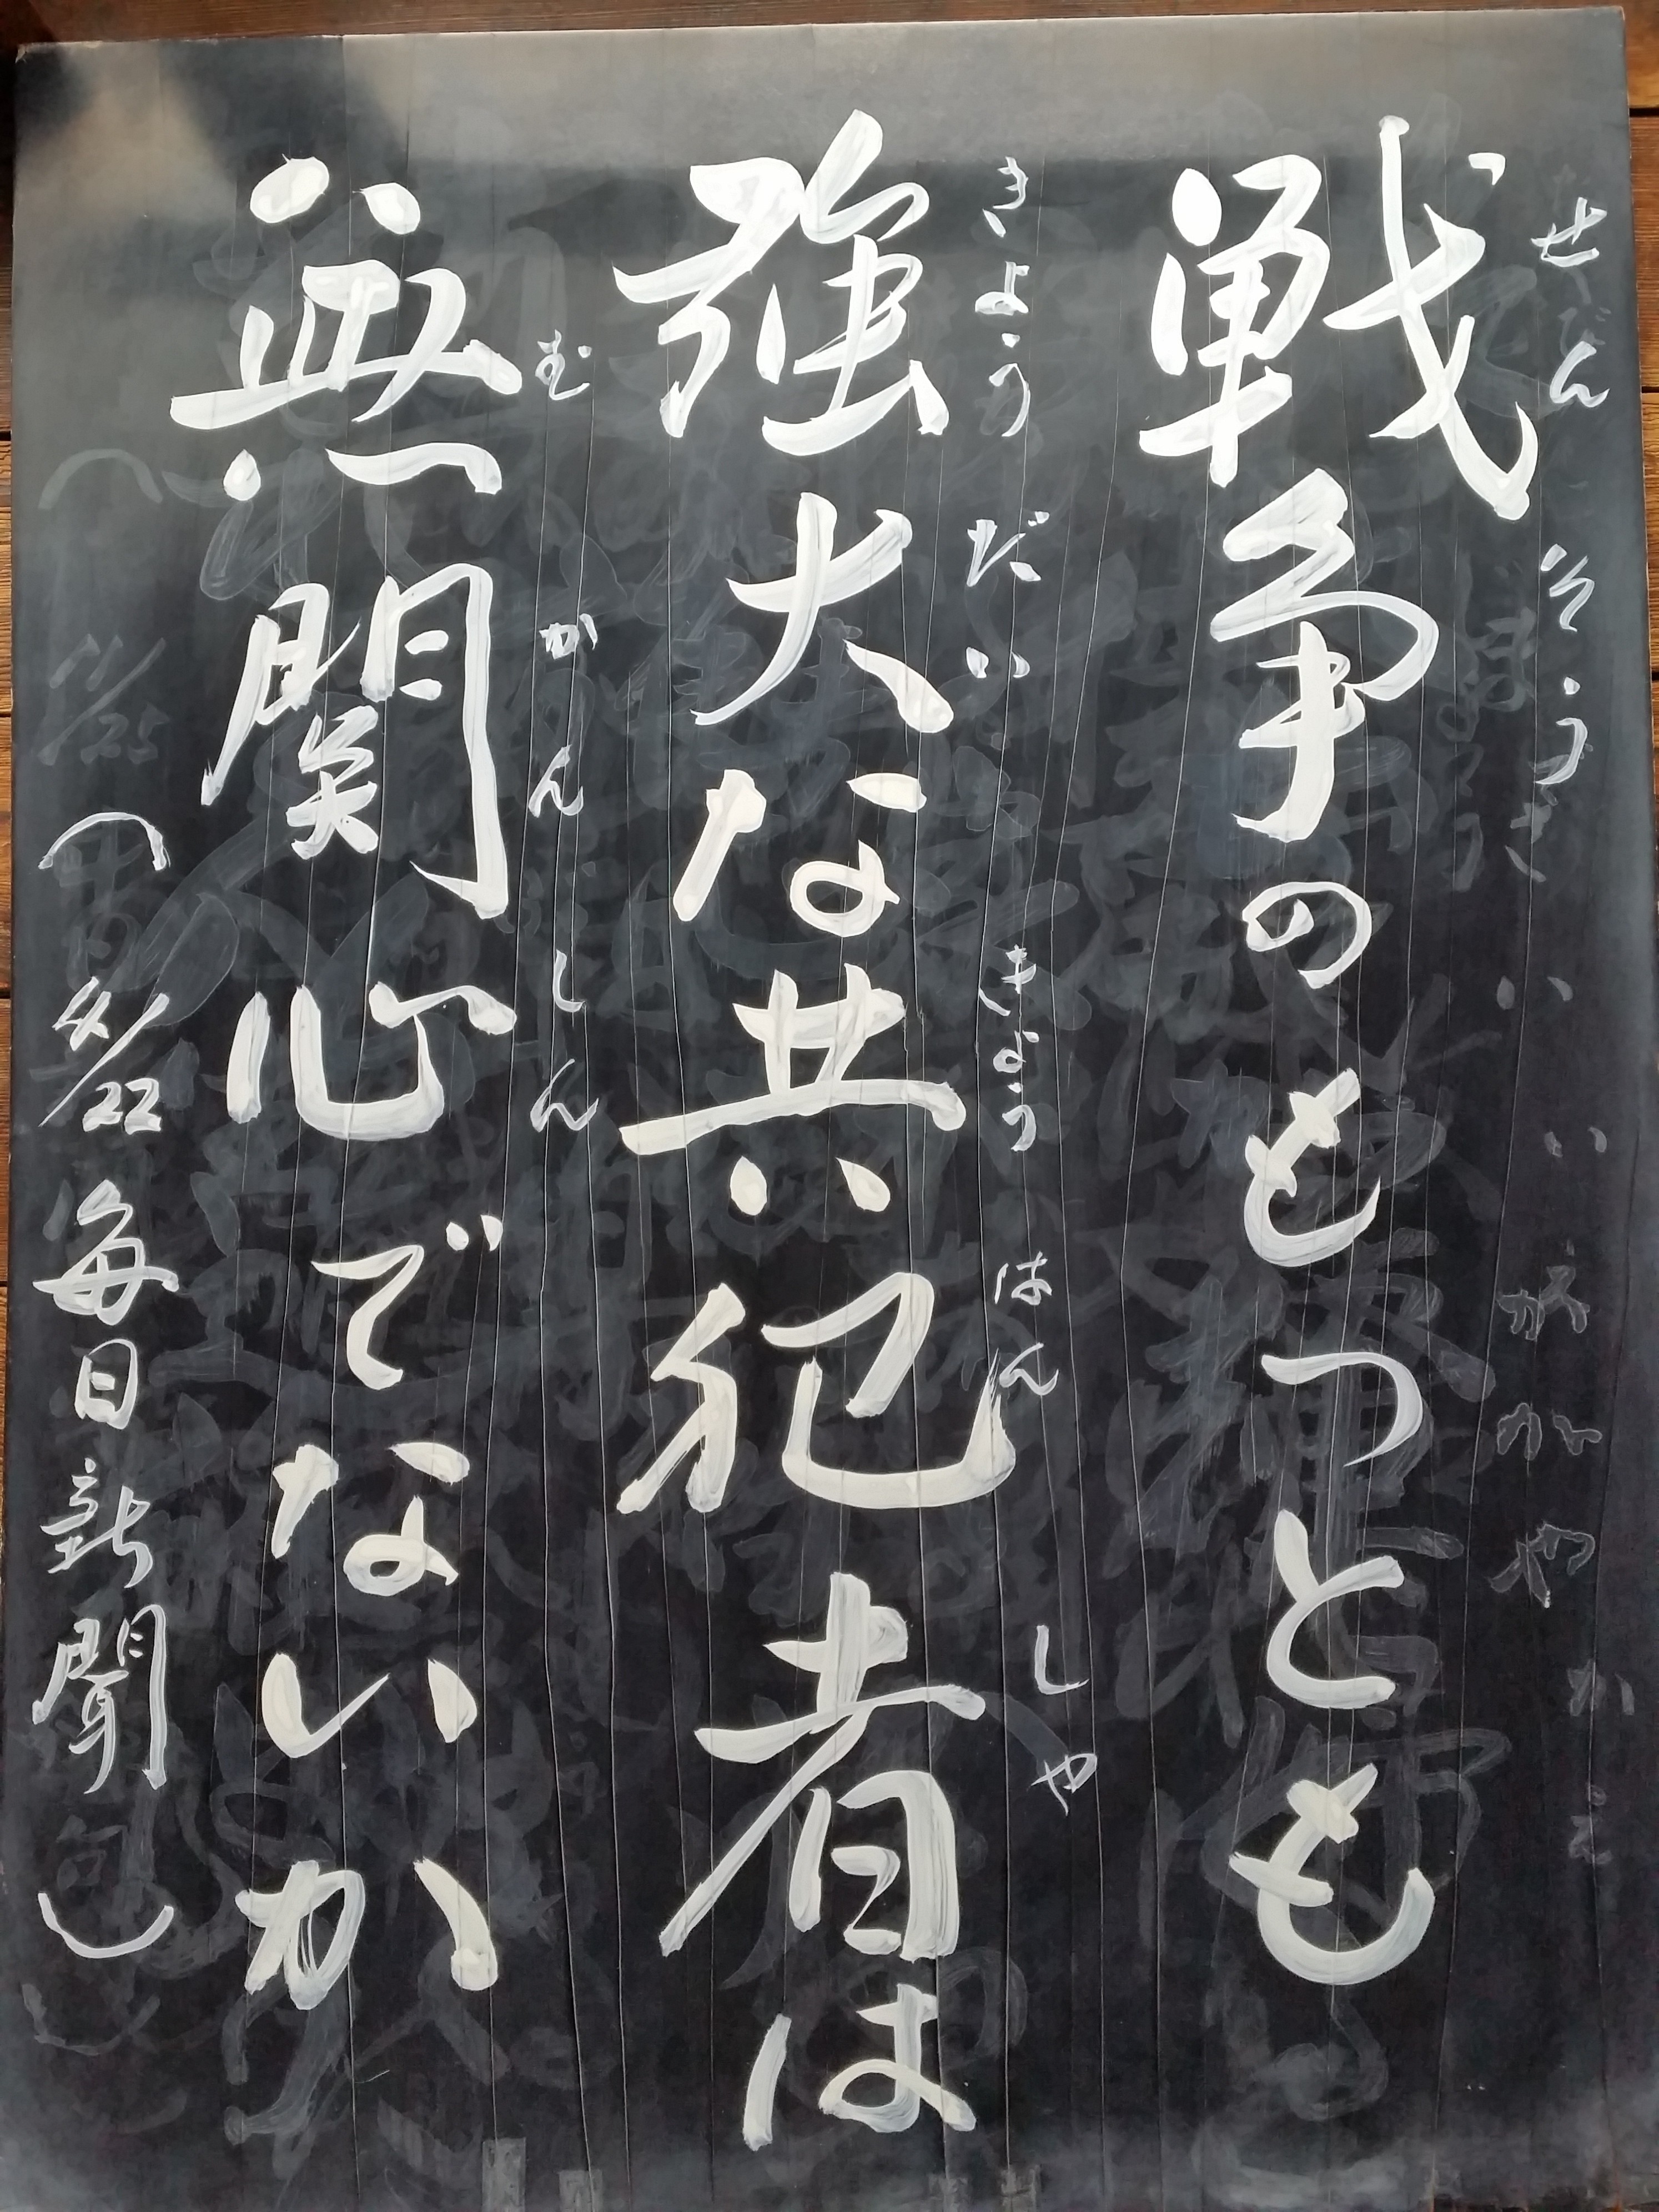 戦争のもつとも
せんそう
強大な共犯者は
きようだい きようはんしや
無関心でないか
むかんしん
(4/22 毎日新聞)